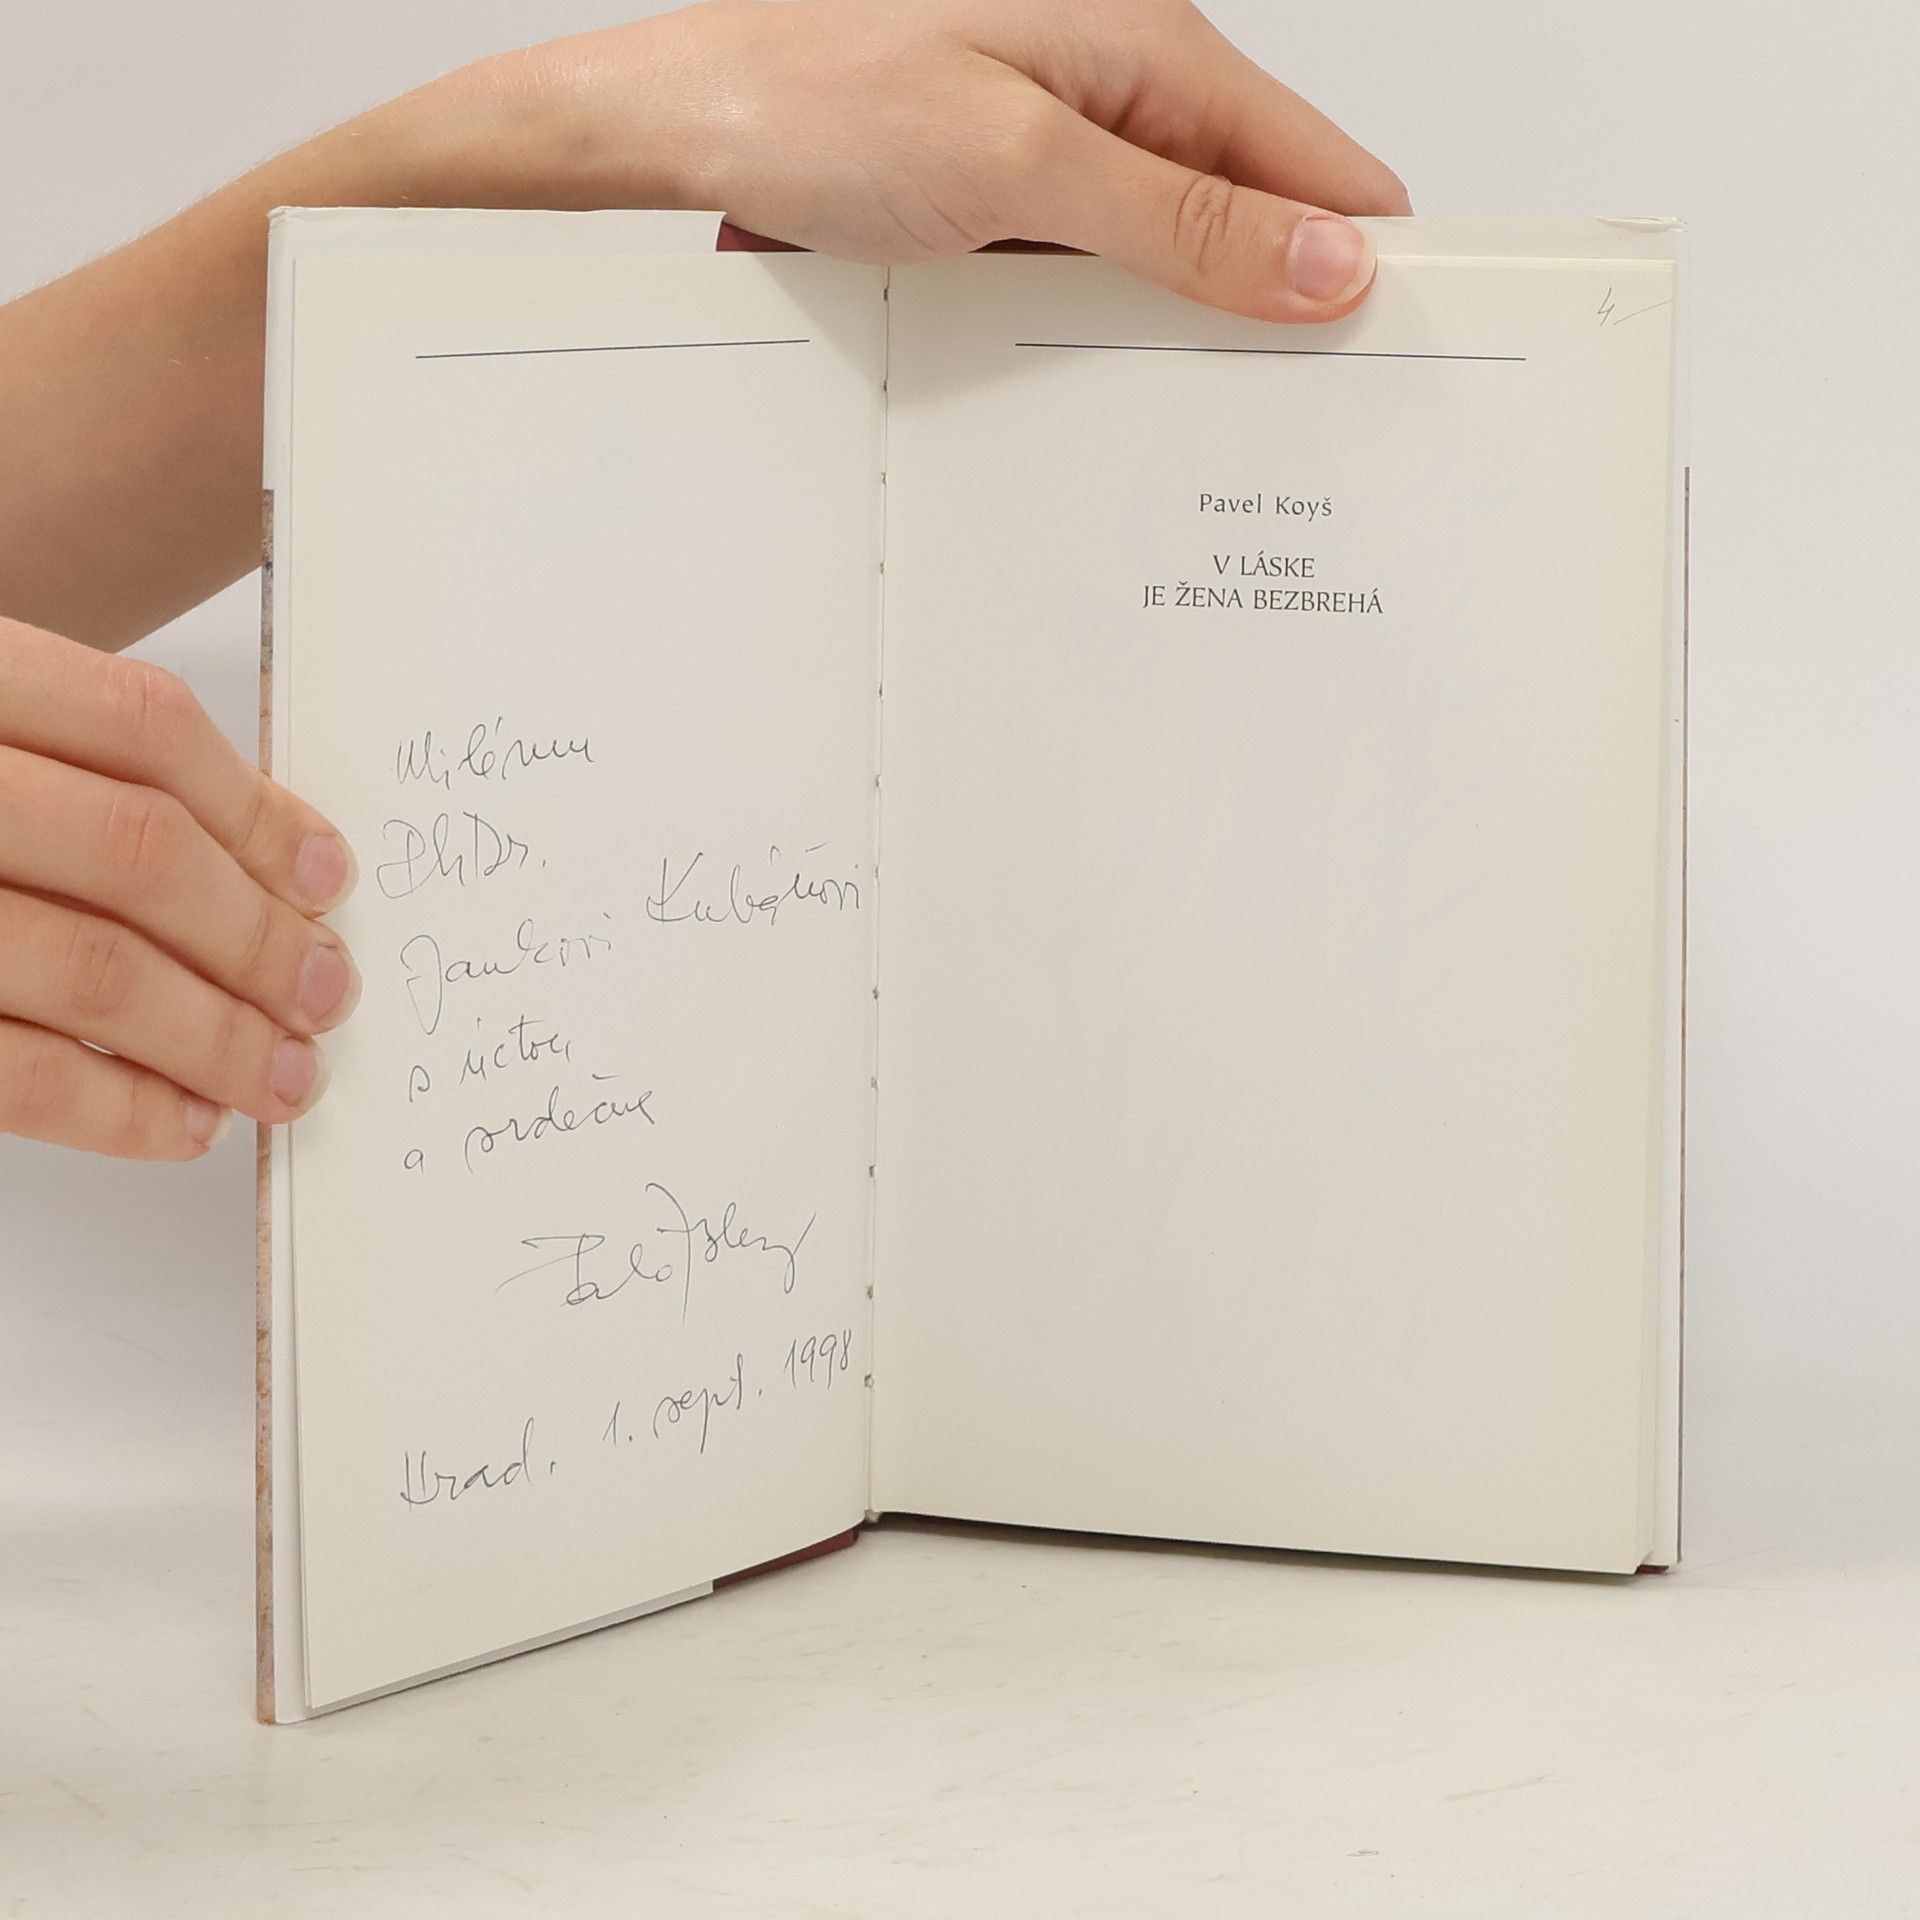 Milému
PhDr.
Jankovi Kubáňovi
s úctou
a srdečne
1. sept. 1998
4
Pavel Koyš
V LÁSKE
JE ŽENA BEZBREHÁ